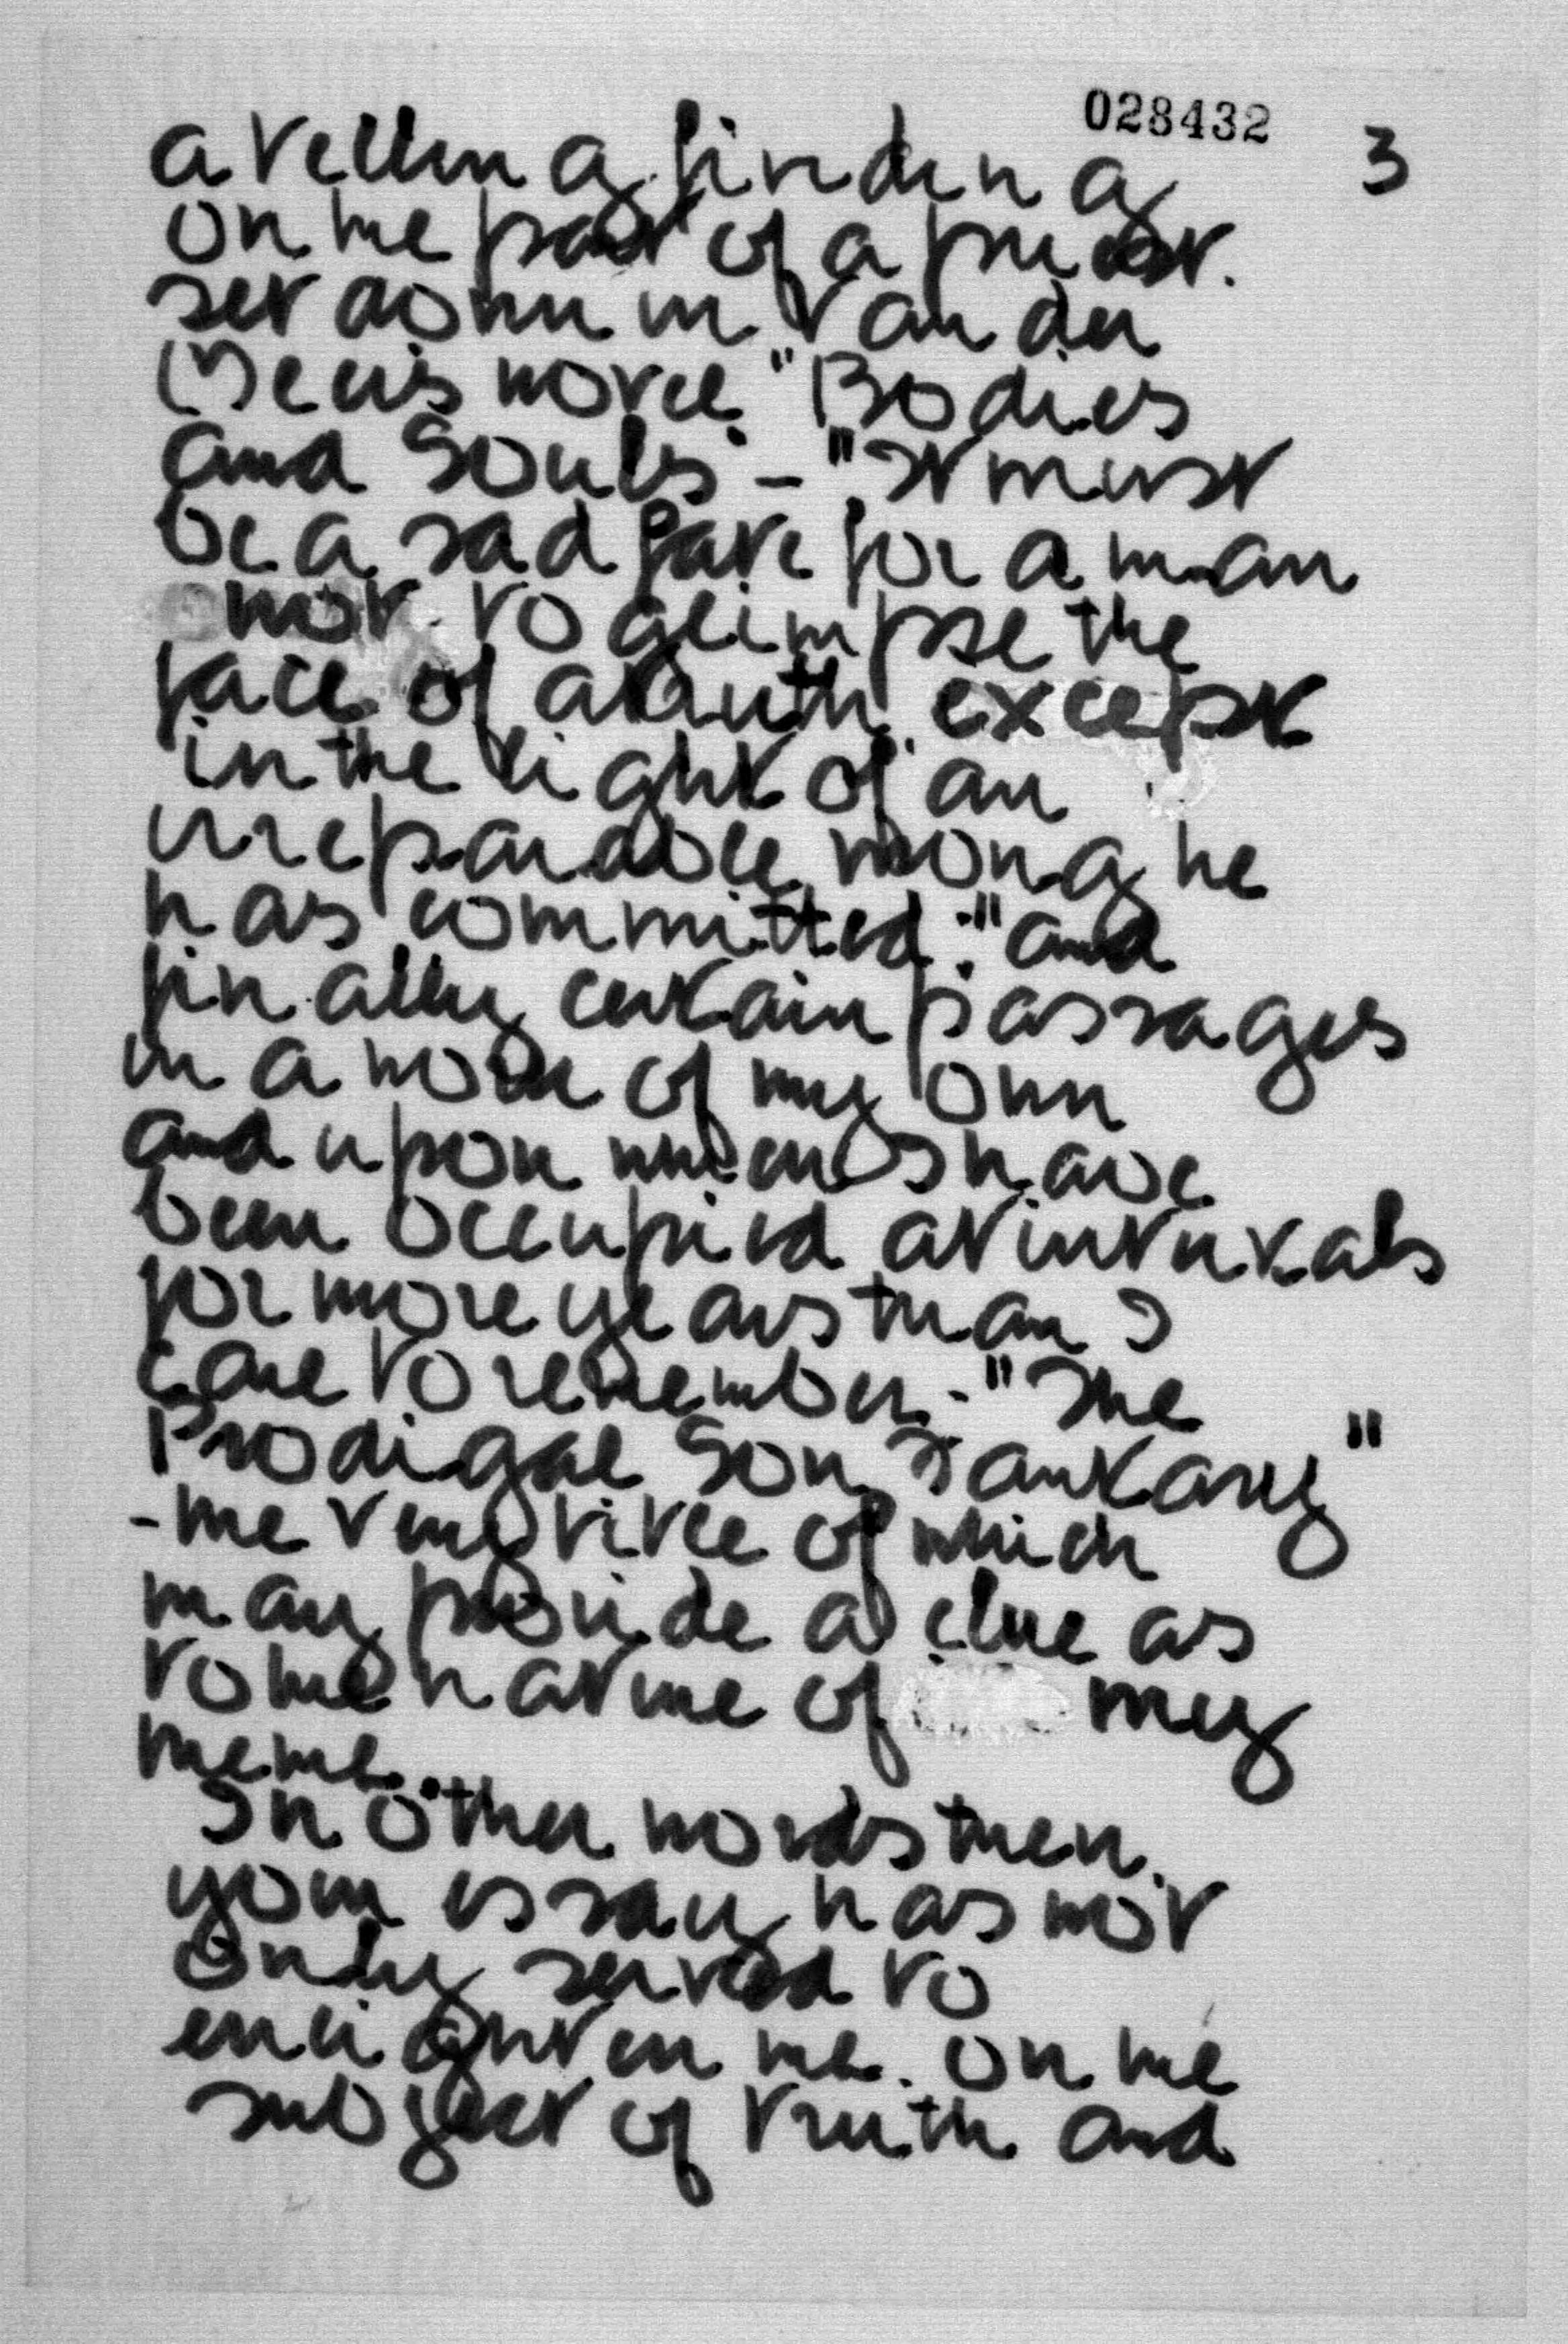 028432 3
a telling finding
on the part of a priest.
set down in Van der
Meers novel "Bodies
and Souls" - "It must
be a sad fate for a man
not to glimpse the
face of a truth except
in the light of an
irreparable wrong he
has committed." and
finally certain passages
in a work of my own
and upon which I have
been occupied at intervals
for more years than I
care to remember - "The
Prodigal Son Fantasy"
- the very title of which
may provide a clue as
to the nature of my
theme.
In other words then,
your essay has not
only served to
enlighten me. on the
subject of truth and